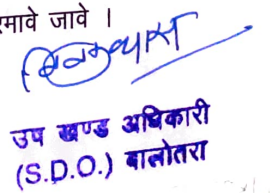 रमावे जावे ।
उप खण्ड अधिकारी
(S.D.O.) बालोतरा